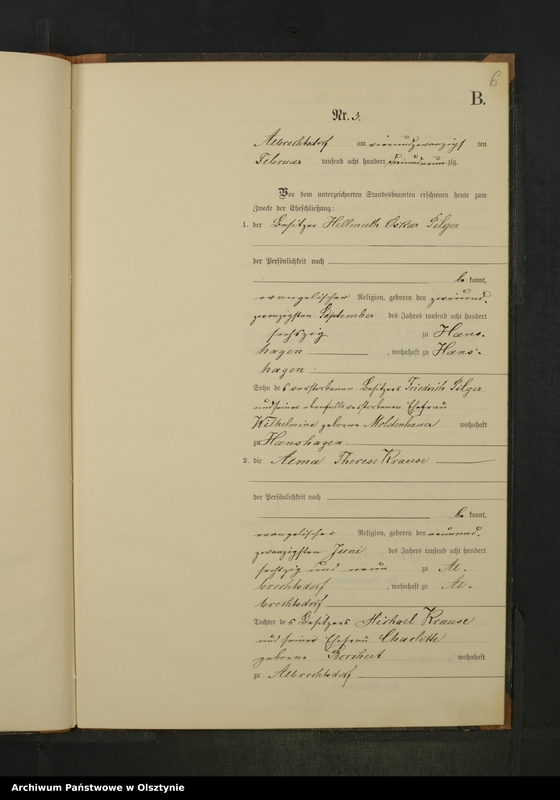 6
B.
Nr. 3.
Albrechtsdorf am vierundzwanzigsten
Februar tausend acht hundert dreiundneunzig.
Vor dem unterzeichneten Standesbeamten erschienen heute zum
Zwecke der Eheschließung:
1. der Besitzer Hellmuth Oskar Pilger
der Persönlichkeit nach
be kannt,
evangelischer Religion, geboren den zweiund-
zwanzigsten September des Jahres tausend acht hundert
sechszig zu Hans-
hagen , wohnhaft zu Hans-
hagen
Sohn des verstorbenen Besitzers Friedrich Pilger
und seiner ebenfalls verstorbenen Ehefrau
Wilhelmine geborene Moldenhauer wohnhaft
zu Hanshagen
2. die Alma Therese Krause
der Persönlichkeit nach
be kannt,
evangelischer Religion, geboren den neunund-
zwanzigsten Juni des Jahres tausend acht hundert
sechszig und neun zu Al-
brechtsdorf , wohnhaft zu Al-
brechtsdorf
Tochter des Besitzers Michael Krause
und seiner Ehefrau Charlotte
geborene Borchert wohnhaft
zu Albrechtsdorf
Archiwum Państwowe w Olsztynie